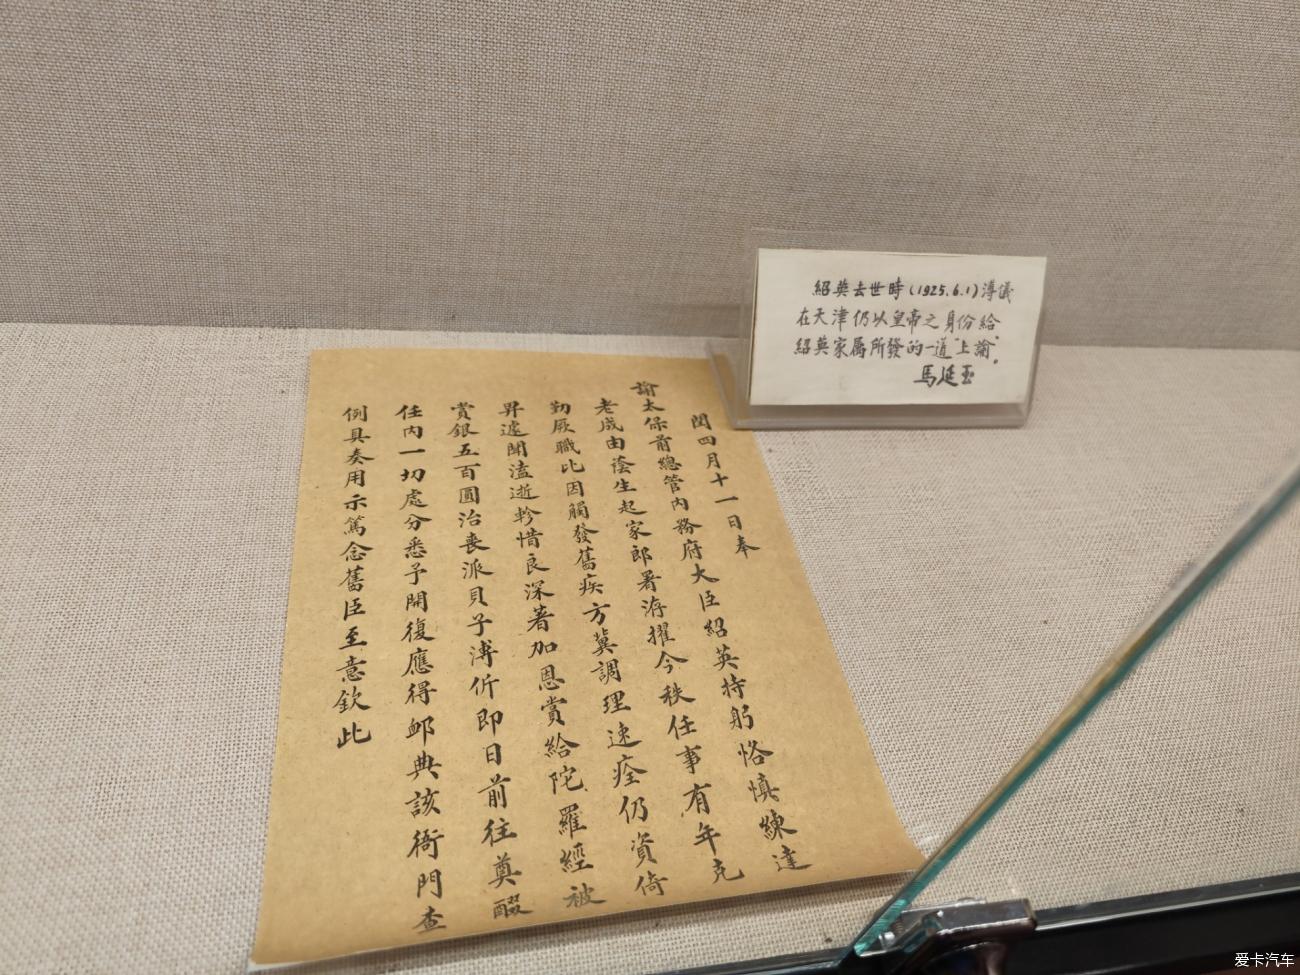 閏四月十一日奉
諭太保前總管內務府大臣紹英持躬恪慎練達
老成由蔭生起家郎署洊擢今秩任事有年克
勤厥職比因觸發舊疾方冀調理速痊仍資倚
畀遽聞溘逝軫惜良深著加恩賞給陀羅經被
賞銀五百圓治喪派貝子溥伒即日前往奠醊
任內一切處分悉予開復應得卹典該衙門查
例具奏用示篤念舊臣至意欽此
紹英去世時(1925.6.1)溥儀
在天津仍以皇帝之身份給
紹英家属所發的一道"上諭"。
馬延玉
爱卡汽车